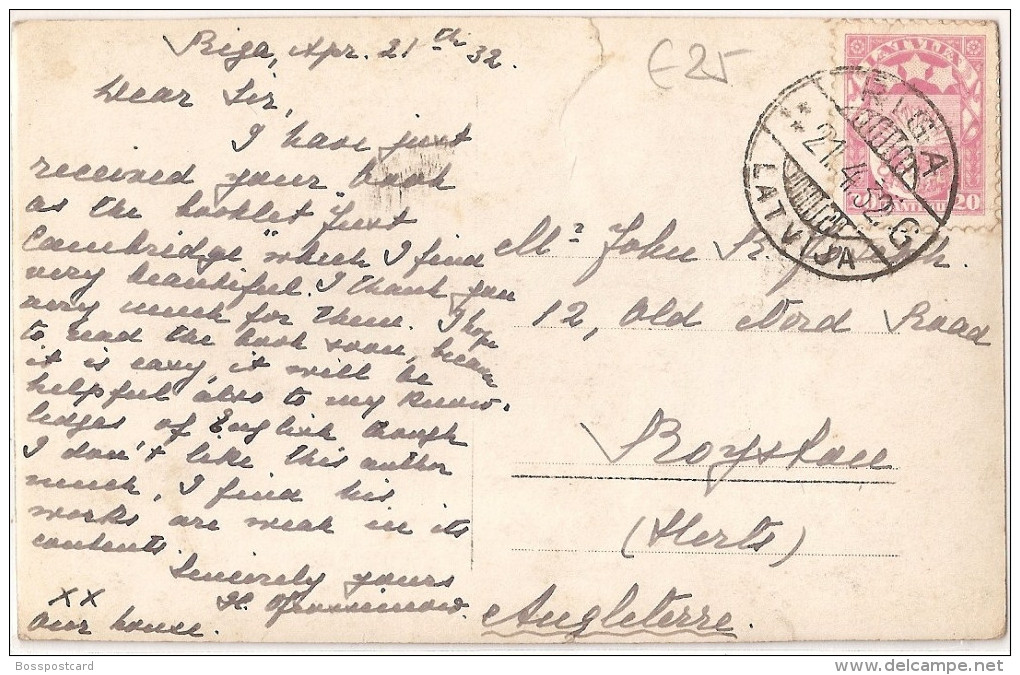 Riga, Apr. 21th 32.
Dear Sir,
I have just
received your book
as the booklet "Just
Cambridge" which I find
very beautiful. I thank you
very much for them. I hope
to read the book soon, because
it is easy, it will be
helpful also to my know-
ledges of English though
I don't like this author
much, I find his
works are weak in its
contents.
Sincerely yours
H.
XX
Our house.
€25
LATVIJA
20 SANTIMU 20
RIGA G
21.4.32
LATVIJA
Mr John R.
12, Old Nord Road
Royston
(Herts)
Angleterre.
Bosspostcard
www.delcampe.net